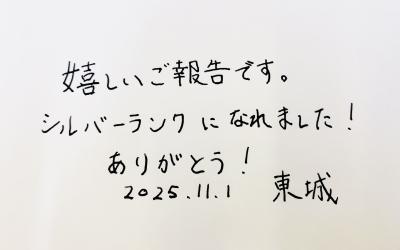 嬉しいご報告です。
シルバーランクになれました!
ありがとう!
2025.11.1 東城